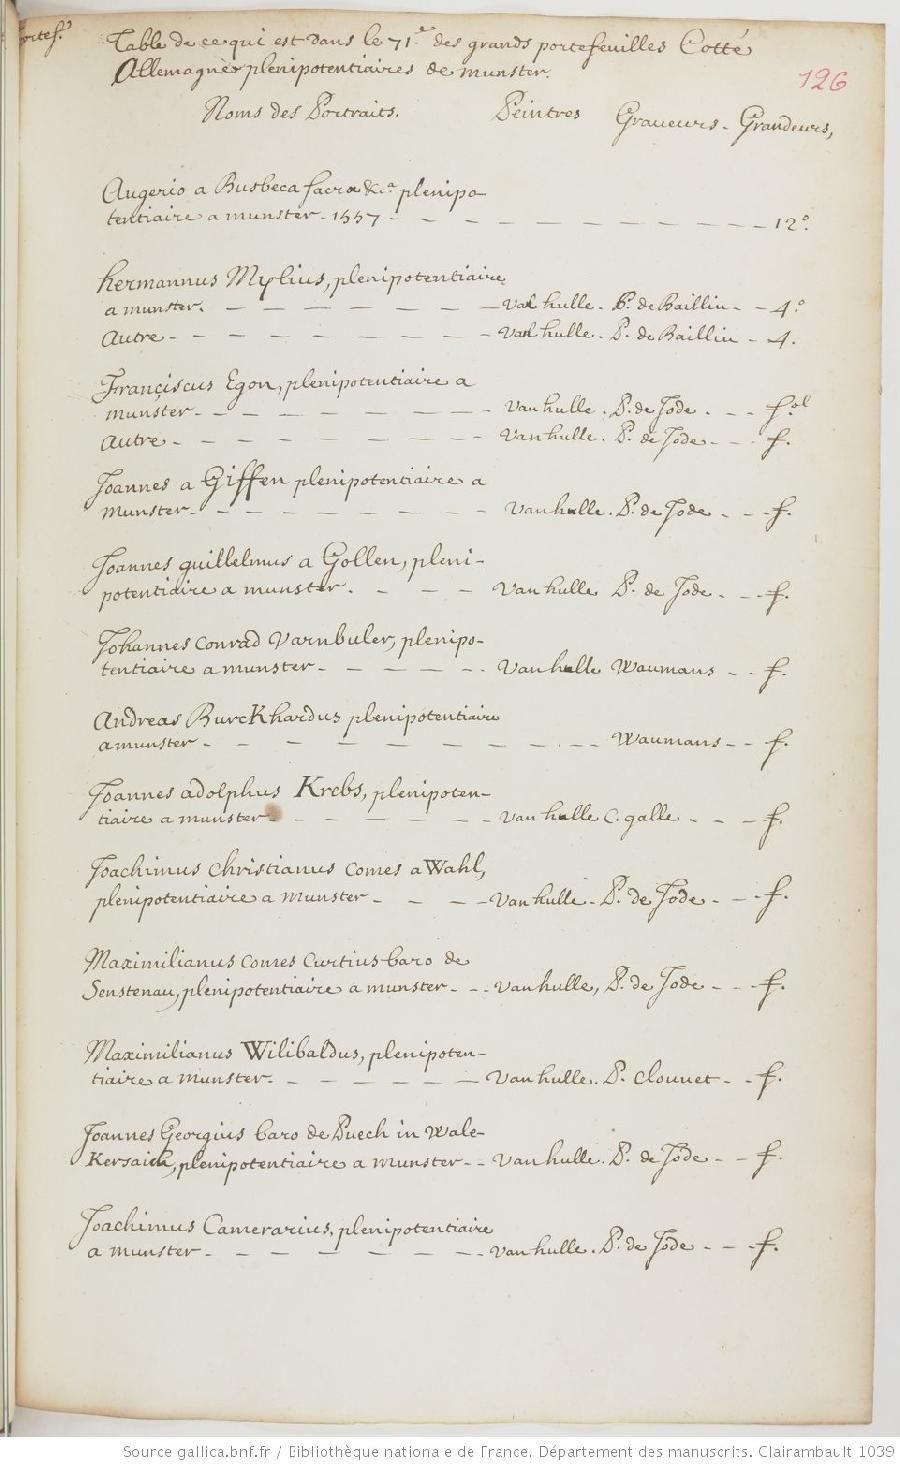 Table de ce qui est dans le 71.e des grands portefeuilles Cotté
Allemagne plenipotentiaires de munster.
126
Noms des Portraits. Peintres Graveurs - Grandeurs,
Augerio a Busbeca sacra &c.a plenipo-
tentiaire a munster - 1557 - - - - - - - - - - 12°.
hermannus Mylius, plenipotentiaire
a munster. - - - - - - Van hulle. P. de Bailliu - - 4.°
Autre - - - - - - - - Van hulle. P. de Bailliu - 4.
Franciscus Egon, plenipotentiaire a
munster - - - - - - - - Van hulle. P. de Jode. - - f.ol
Autre - - - - - - - - Van hulle. P. de Jode - - f.
Joannes a Giffen plenipotentiaire a
munster - - - - - - - - Van hulle. P. de Jode - - f.
Joannes guillelmus a Gollen, pleni-
potentiaire a munster. - - - Van hulle P. de Jode. - - f.
Johannes conrad Varnbuler, plenipo-
tentiaire a munster - - - - - Van hulle Waumans - - f.
Andreas Burckhardus plenipotentiaire
a munster - - - - - - - - - - Waumans - - f.
Joannes adolphus Krebs, plenipoten-
tiaire a munster - - - - - - Van hulle C. galle - - - f.
Joachimus christianus comes a Wahl,
plenipotentiaire a munster - - - - Van hulle - P. de Jode - - f.
Maximilianus comes Curtius baro de
Senstenau, plenipotentiaire a munster - - Van hulle, P. de Jode - - f.
Maximilianus Wilibaldus, plenipoten-
tiaire a munster. - - - - - - Van hulle. P. clouuet - - f.
Joannes Georgius baro de Puech in Wale-
Kersaich, plenipotentiaire a munster - - Van hulle. P. de Jode - - f.
Joachimus Camerarius, plenipotentiaire
a munster - - - - - - - - Van hulle. P. de Jode - - - f.
Source gallica.bnf.fr / Bibliothèque nationale de France. Département des manuscrits. Clairambault 1039